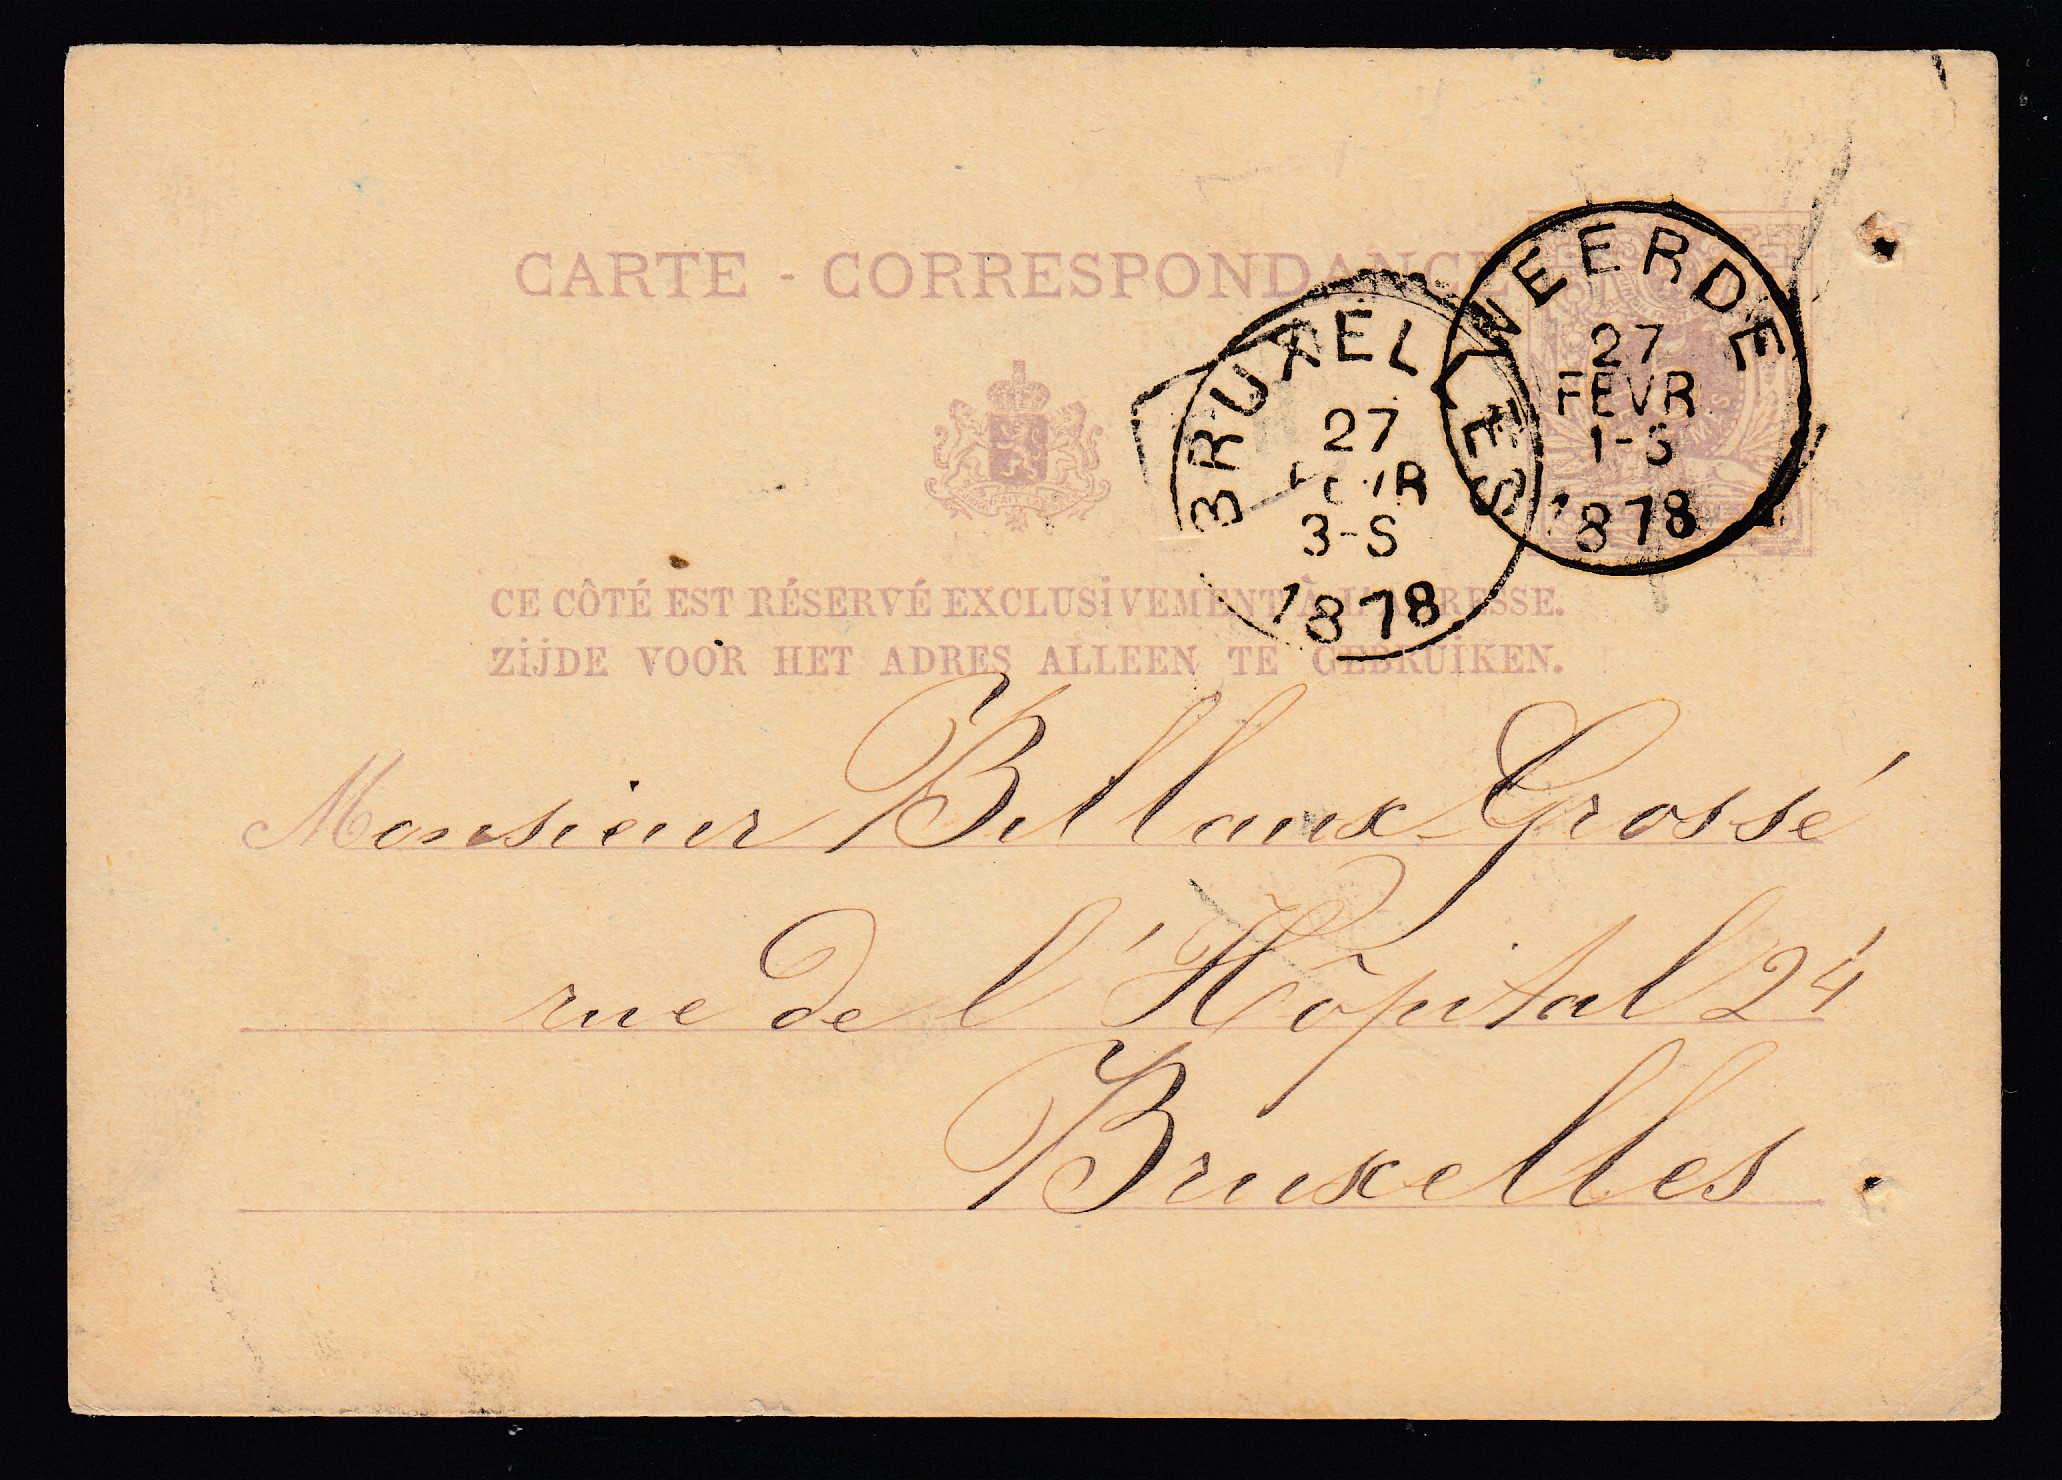 CARTE - CORRESPONDANCE
WEERDE
27
FEVR
1-S
1878
BRUXELLES
27
FEVR
3-S
1878
CE CÔTÉ EST RÉSERVÉ EXCLUSIVEMENT À L'ADRESSE.
ZIJDE VOOR HET ADRES ALLEEN TE GEBRUIKEN.
Monsieur Billaux-Grossé
rue de l'Hôpital 24
Bruxelles